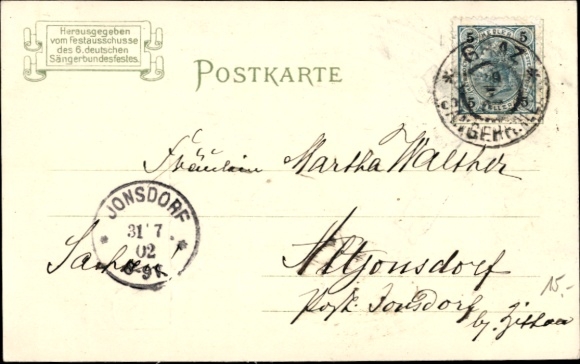 Herausgegeben
vom Festausschusse
des 6. deutschen
Sängerbundesfestes.
POSTKARTE
5 5
5 5
GRAZ
SÄNGERHALLE
Fräulein Martha Walther
JONSDORF
31 7
02
Sachsen!
Altjonsdorf
Post Jonsdorf
bj. Zittau
15.-